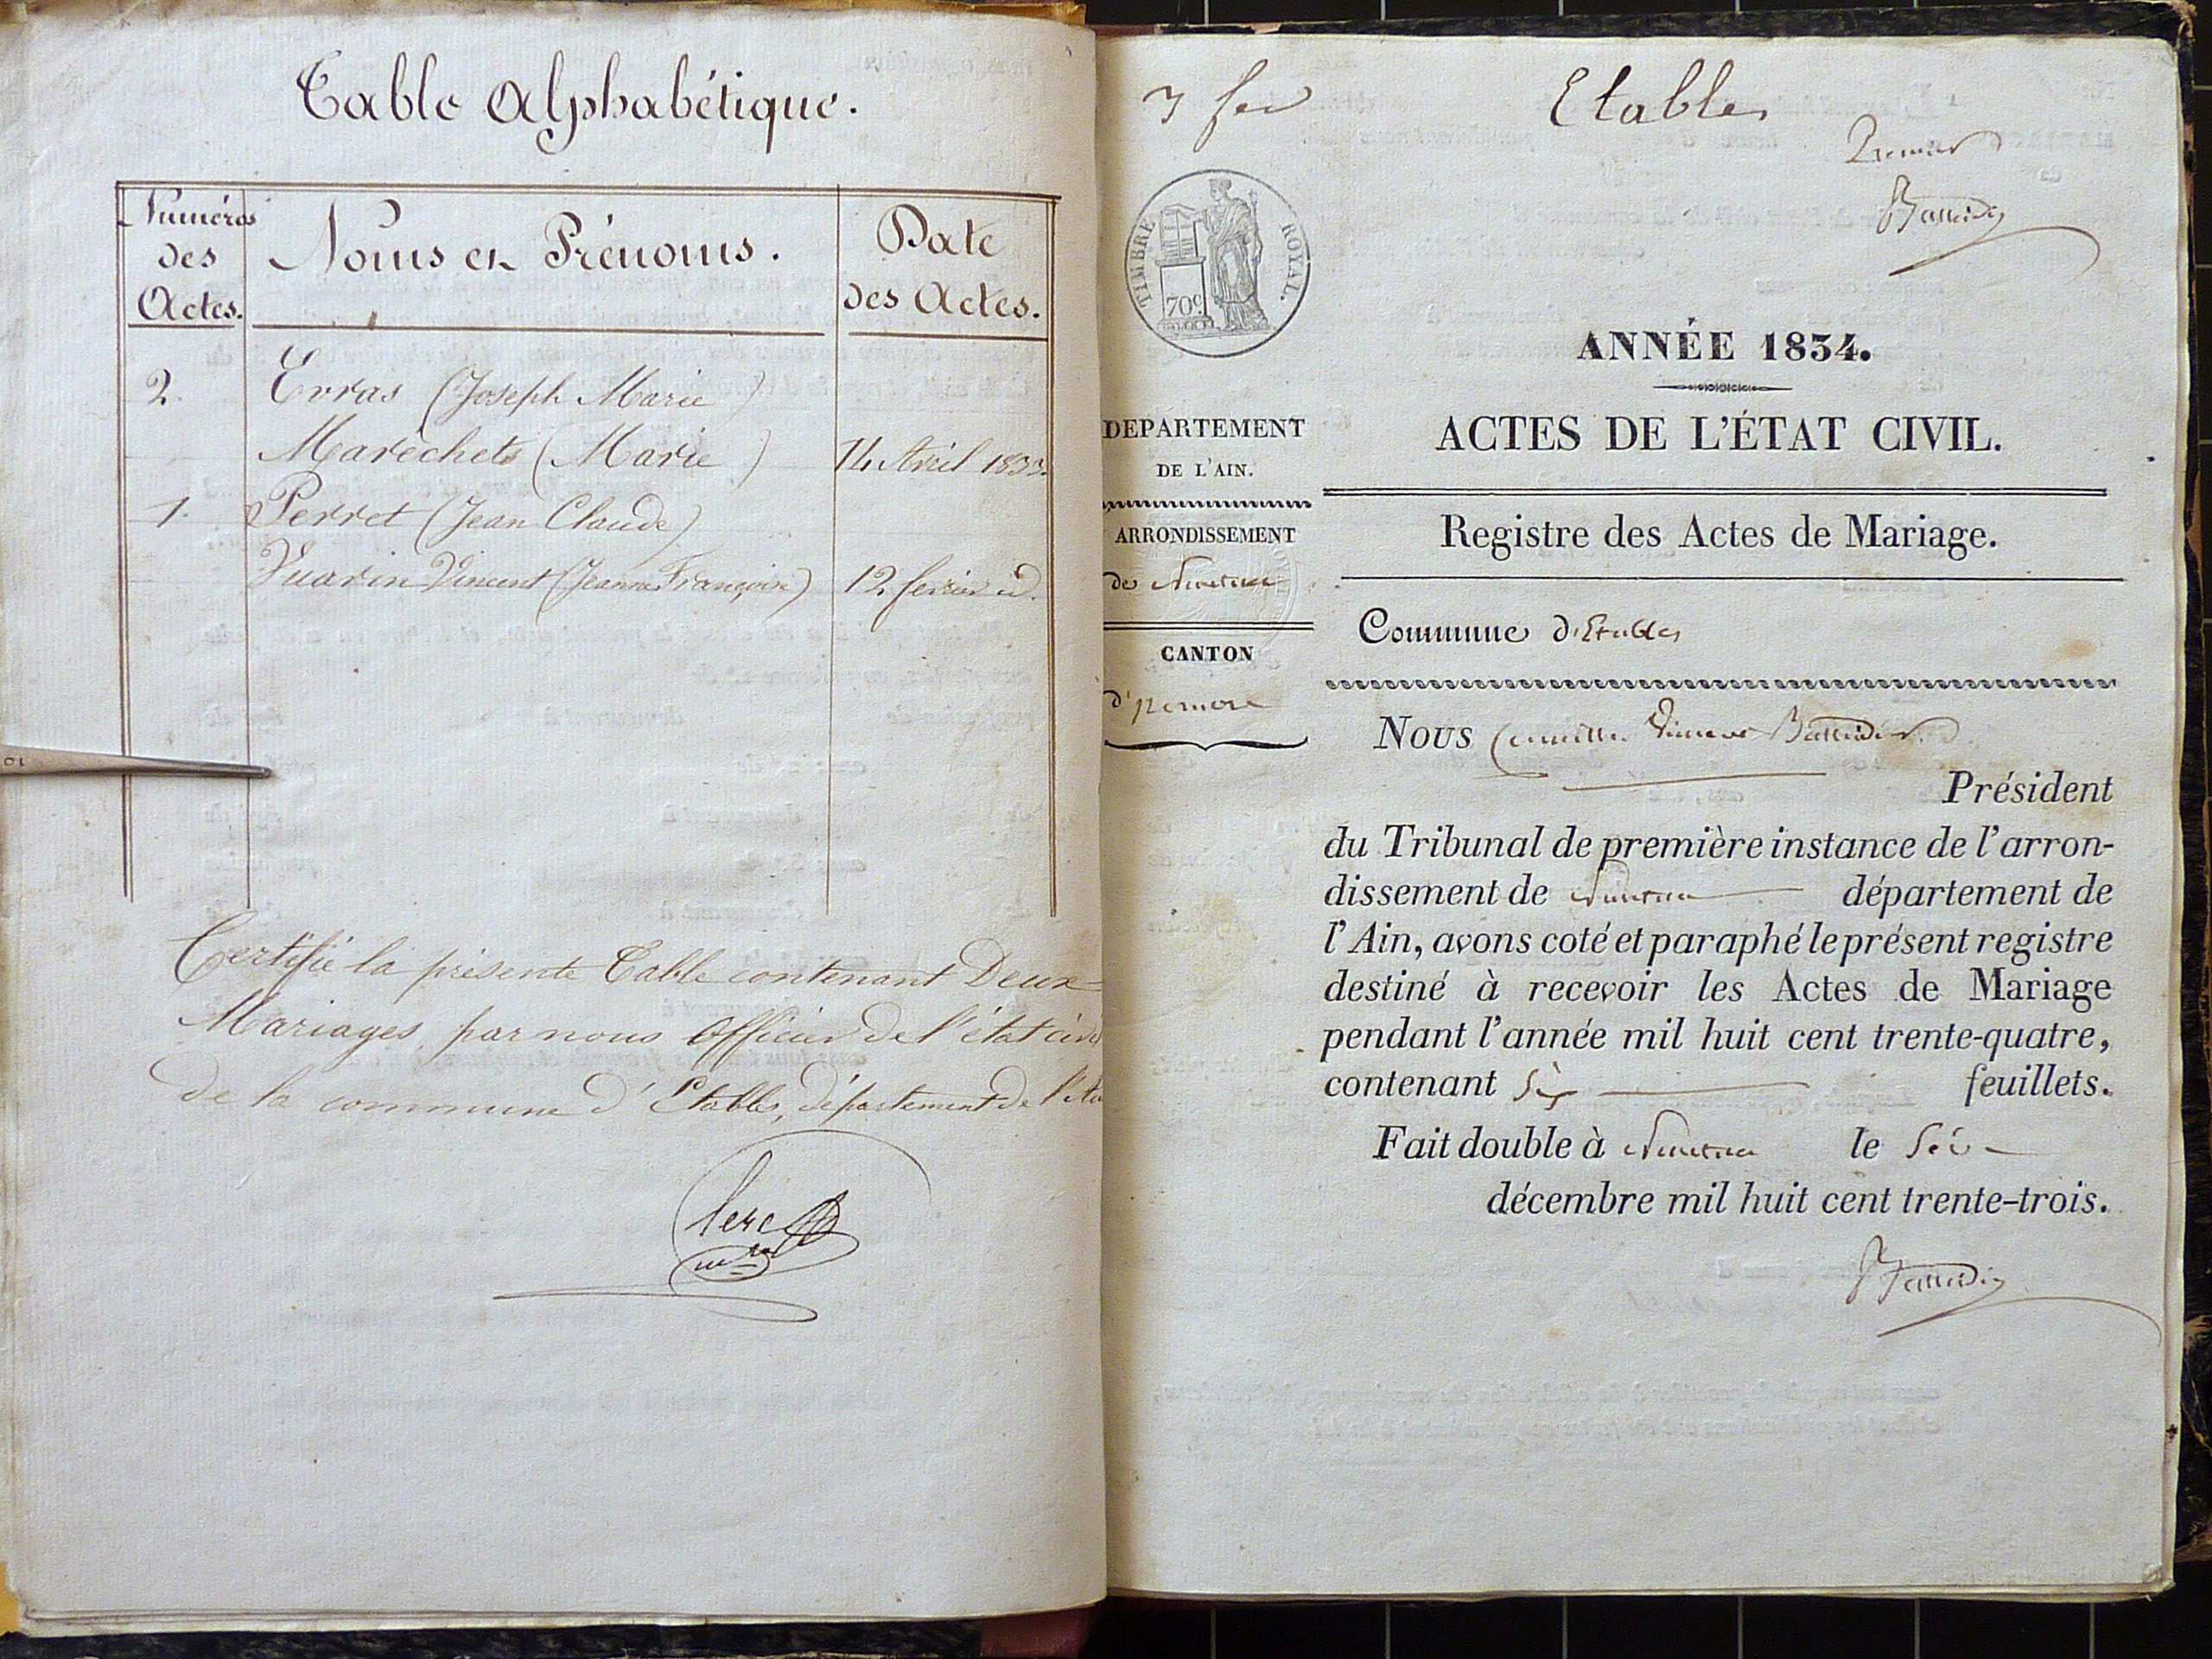 Table Alphabétique.
Numéros
des
Actes.
Noms et Prénoms.
Date
des Actes.
2. Erras (Joseph Marie)
Maréchets (Marie) 14 Avril 1833.
1. Perret (Jean Claude)
Vuarin Vincent (Jeanne Françoise) 12 fevrier id.
Certifié la présente Table contenant Deux
Mariages, par nous Officier de l'état civil
de la commune d'Etables, département de l'Ain
Clerc
3 fer
Etables
Premier
TIMBRE ROYAL.
70c.
ANNÉE 1834.
DEPARTEMENT
DE L'AIN.
ACTES DE L'ÉTAT CIVIL.
ARRONDISSEMENT
de Nantua
Registre des Actes de Mariage.
CANTON
d'izernore
Commune d'Etables
NOUS
Président
du Tribunal de première instance de l'arron-
dissement de Nantua département de
l'Ain, avons coté et paraphé le présent registre
destiné à recevoir les Actes de Mariage
pendant l'année mil huit cent trente-quatre,
contenant Six feuillets.
Fait double à Nantua le Six
décembre mil huit cent trente-trois.